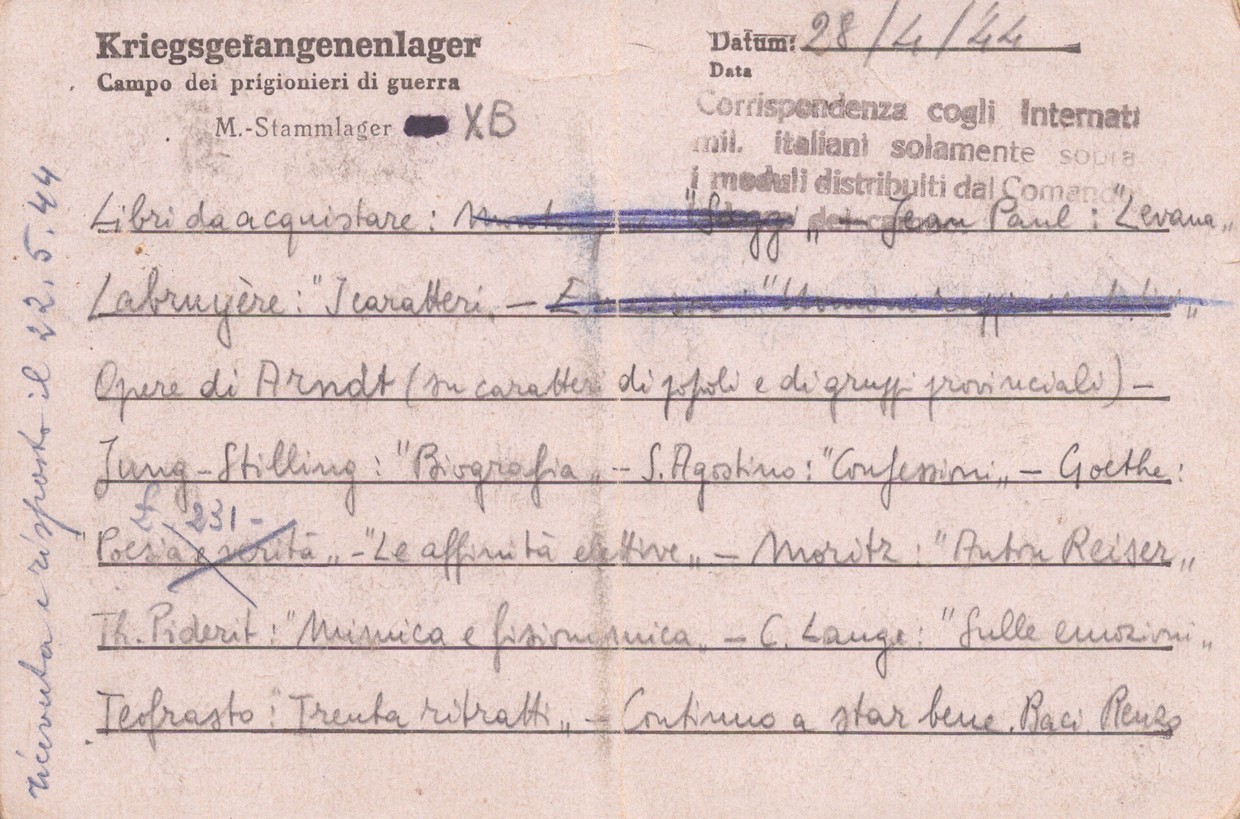 Kriegsgefangenenlager
Campo dei prigionieri di guerra
M.-Stammlager XB
Datum: 28/4/44
Data
Corrispondenza cogli Internati
mil. italiani solamente sopra
i moduli distribuiti dal Comando
del campo
Libri da acquistare: "Saggi„ – Jean Paul: "Levana„
Labruyère: "I caratteri„ –
Opere di Arndt (su caratteri di popoli e di gruppi provinciali) –
Jung-Stilling: "Biografia„ – S. Agostino: "Confessioni„ – Goethe:
231-
"Poesia e verità„ – "Le affinità elettive„ – Moritz: "Anton Reiser„
Th. Piderit: "Mimica e fisionomica„ – C. Lange: "Sulle emozioni„
Teofrasto: "Trenta ritratti„ – Continuo a star bene. Baci Renzo
ricevuta e risposto il 22.5.44